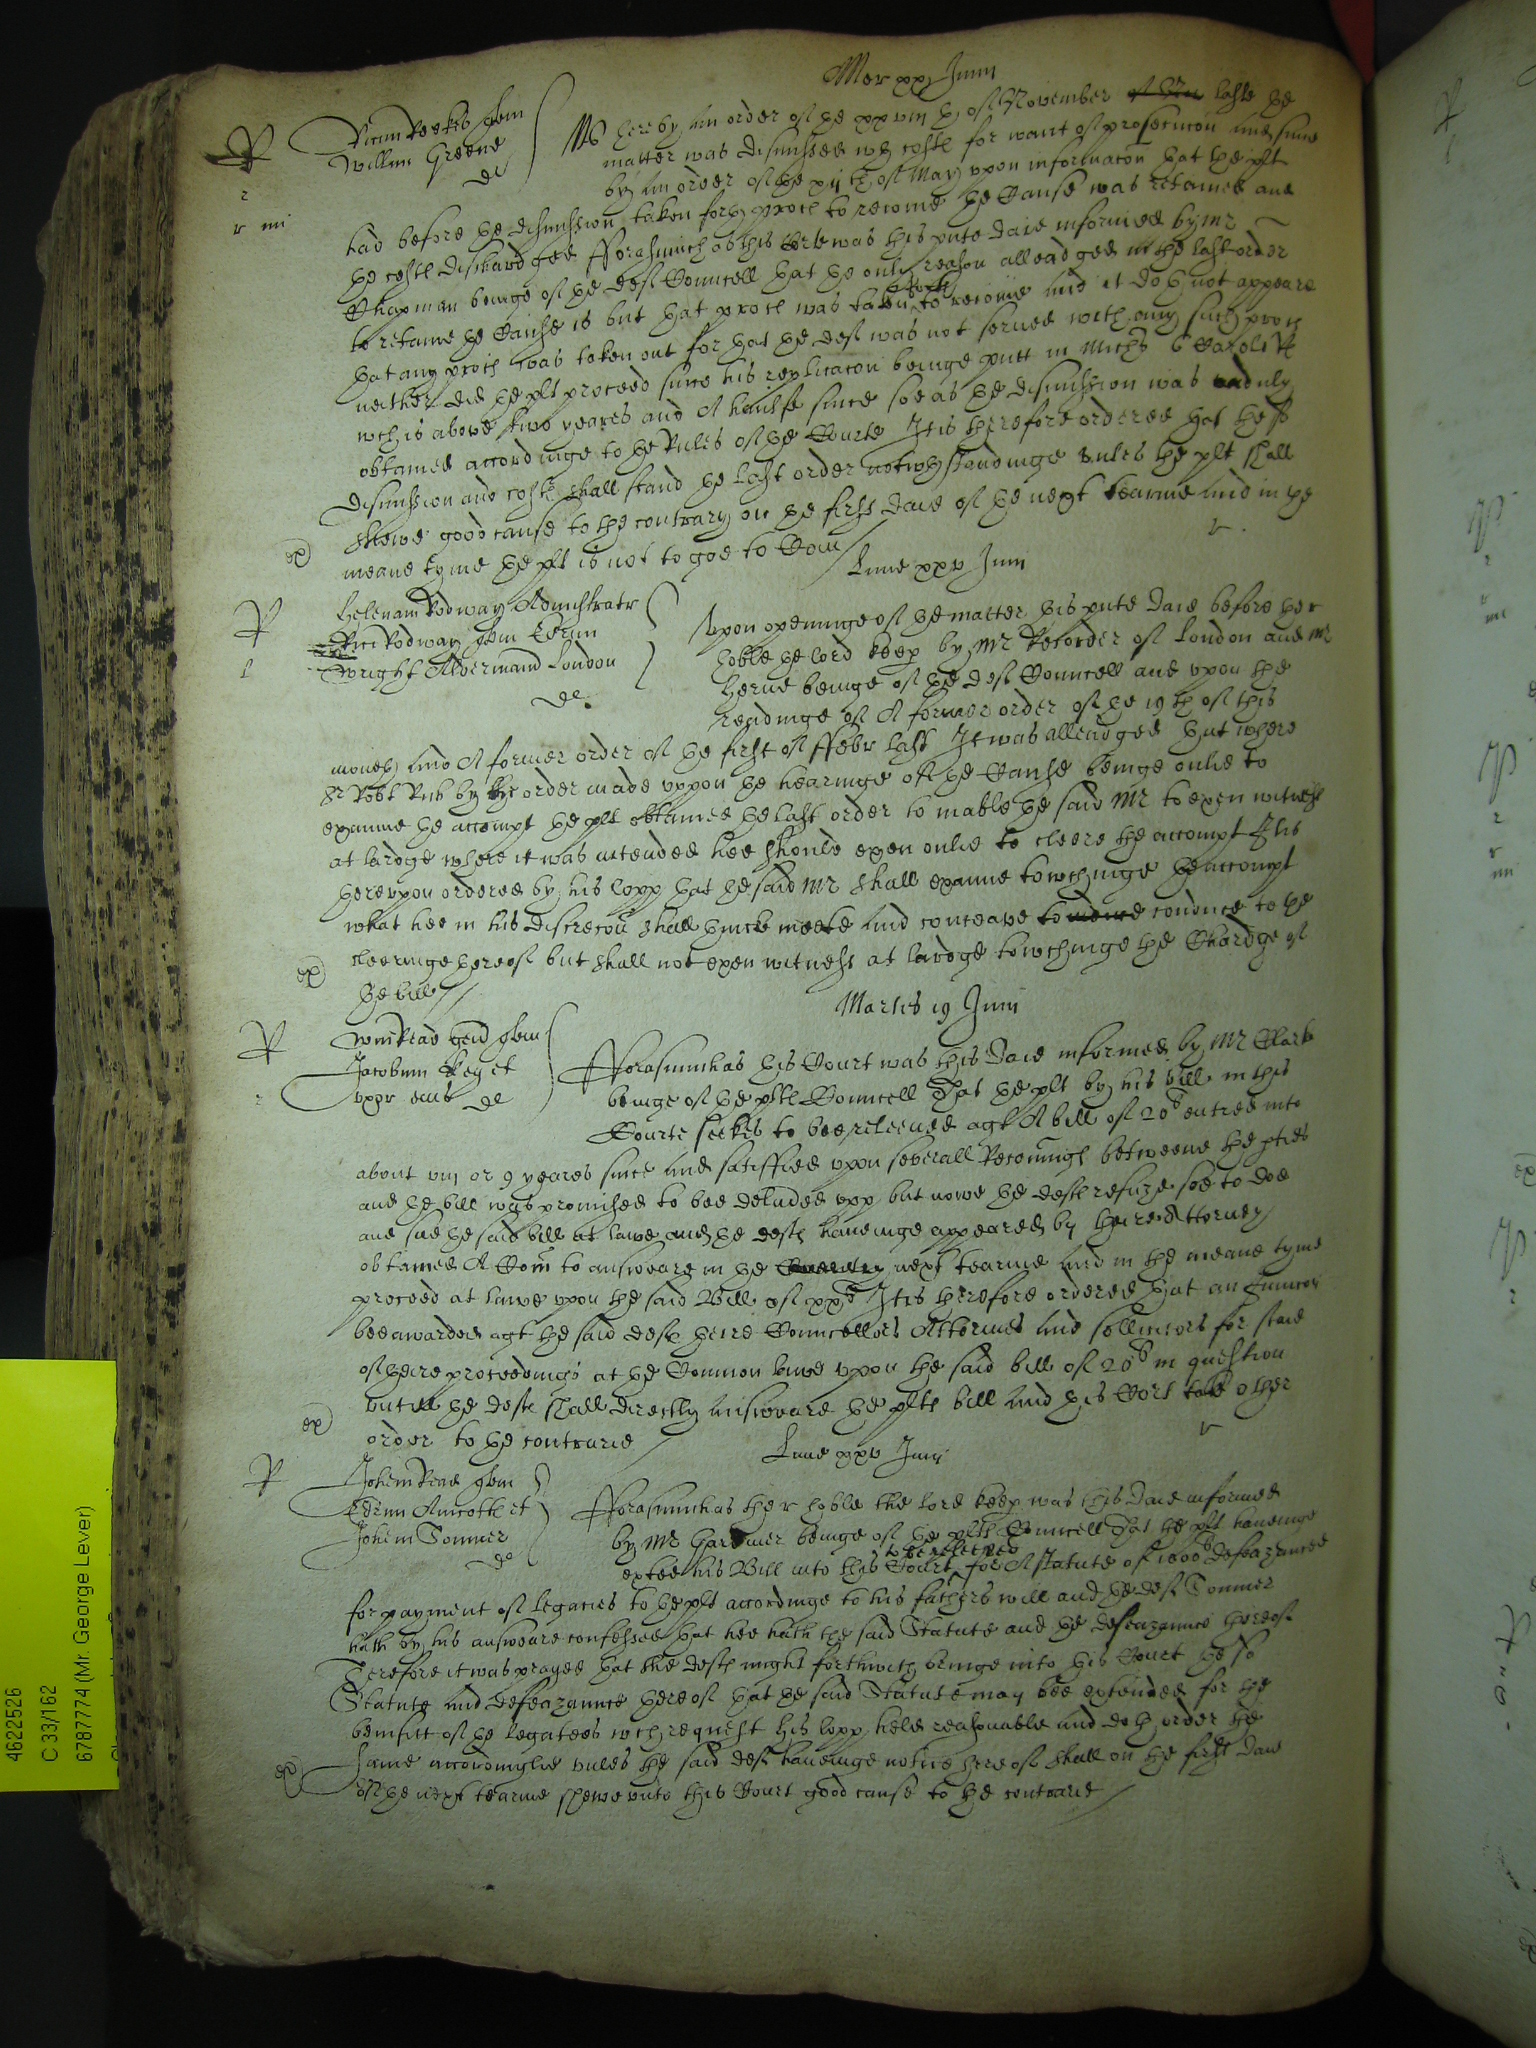 Mer xx Junij
R
Ricum Reekes quer
Willm Greene
def
Whereby an order of the xxviijth of November of this laste the
matter was dismissed wth costs for want of prosecucon and since
by an order of the xijth of May upon informacon that the plt
had before the dismission taken forth proces to reioine the Cause was retained and
the costs dischardged Fforasmuch as this Corte was this pnte daie informed by Mr
Chapman beinge of the defts Councell that the onlie reason alleadged in the last order
to retaine the Cause is but that proces was taken forth to reioine And it doth not appeare
that any proces was taken out for that the deft was not served with any such proces
neither did the plt proceed since his replicacon beinge putt in Michs 6 Caroli Rs
wch is above two yeares and A haulfe since soe as the dismission was duly
obtained accordinge to the Rules of the Courte It is therefore ordered that the sd
dismission and costs shall stand the last order notwthstandinge unles the plt shall
shewe good cause to the contrary on the first daie of the next tearme And in the
meane tyme the plt is not to goe to Com
ex
r
Lune xxv Junij
R
Helenam Rodway Administratr
Rici Rodway quer Edrum
Wright Alderman London
def
Upon openinge of the matter this pnte daie before the r
hoble the lord keep by Mr Recorder of London and Mr
Herne beinge of the defts Councell and upon the
readinge of A former order of the 19th of this
moneth And A former order of the first of Ffebr last It was alleadged that where
Sr Robt Rich by the order made uppon the hearinge of the Cause beinge onlie to
examine the accompt the plt obtained the last order to inable the said Mr to exen witness
at lardge where it was intended hee should exen onlie to cleere the accompt It is
thereupon ordered by his lopp that the said Mr shall examine towchinge the accompt
what hee in his discrecon shall thinck meete And conceave to conduce to the
cleeringe thereof but shall not exen witness at lardge towchinge the Chardge of
ex
the bill
Martis 19 Junij
R
Wm Read gen quer
Jacobum Key et
uxor eius def
Fforasmuch as this Court was this daie informed by Mr Clark
beinge of the plts Councell That the plt by his bill in this
Courte seekes to bee releeved agt A bill of 20li entred into
about viij or 9 yeares since and satisfied upon severall Reconings betweene the pties
and the bill was promised to bee delivded upp but nowe the defts refuze soe to doe
and sue the said bill at lawe and the defts haveinge appeared by theire Attorney
obtained A Com to answeare in the next tearme And in the meane tyme
proceed at lawe upon the said Bill of xxli It is therefore ordered that an Iniuncon
bee awarded agt the said defts theire Councellors Attornies And sollicitors for staie
of theire proceedings at the Common lawe upon the said bill of 20li in question
untill the defts shall directly answeare the plts bill And this Cort take other
ex
order to the contrarie
r
Lune xxv Junij
R
Johem Read quer
Edrum Ancotts et
Johem Sonner
def
Fforasmuch as the r hoble the lord keep was this daie informed
by Mr Gardiner beinge of the plts Councell That the plt haveinge
exted his Bill into this Court to be releeved for A statute of 1000li defeazanced
for payment of legacies to the plt accordinge to his fathers will and the deft Sonner
hath by his answeare confessed that hee hath the said Statute and the defeazance thereof
Therefore it was prayed that the defts might forthwith bringe into this Court the sd
Statute And defeazance thereof that the said Statute may bee extended for the
benifitt of the legatees wch request his lopp held reasonable and doth order the
ex
same accordinglie unles the said deft haveinge notice hereof shall on the first daie
of the next tearme shewe unto this Court good cause to the contrarie
4622526
C 33/162
6787774 (Mr. George Lever)